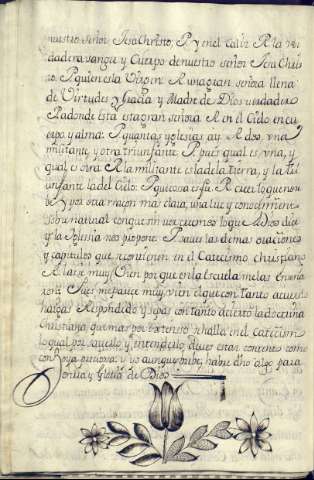 nuestro Señor Jesu Christo, R. y en el caliz R. la ver
dadera sangre y Cuerpo de nuestro señor Jesu Chris
to. P. quien es la Virgen R. una gran señora llena
de Virtudes y Gracia y Madre de Dios verdadera
P. adonde esta esta gran señora R. en el Cielo en cu
erpo y alma. P. quantas yglesias ay R. dos, vna
militante, y otra triunfante P. pues qual es, vna, y
qual es otra R. la militante es la de la tierra, y la tri
unfante la del Cielo. P. que cosa es fe R. creer lo que no se
ve y por otra rrazon mas clara, una luz y conocimiento
sobrenatural con que sin ver creemos lo que Dios dice
y la Yglesia nos propone P. saveis las demas oraciones
y capitulos que se contienen en el Catecismo christiano
R. las se muy Vien por que en la Escuela me las Enseña
ron. Pues me parece muy vien el que con tanto acuerdo
haigas Respondido y sepas con tanto acierto la doctrina
christiana que mas por extenso se halla en el catecismo
lo qual por saverlo y entenderlo deves estar contento como
con Joya preciosa. y yo aunque pobre, habre dho algo para
honra y Gloria de Dios